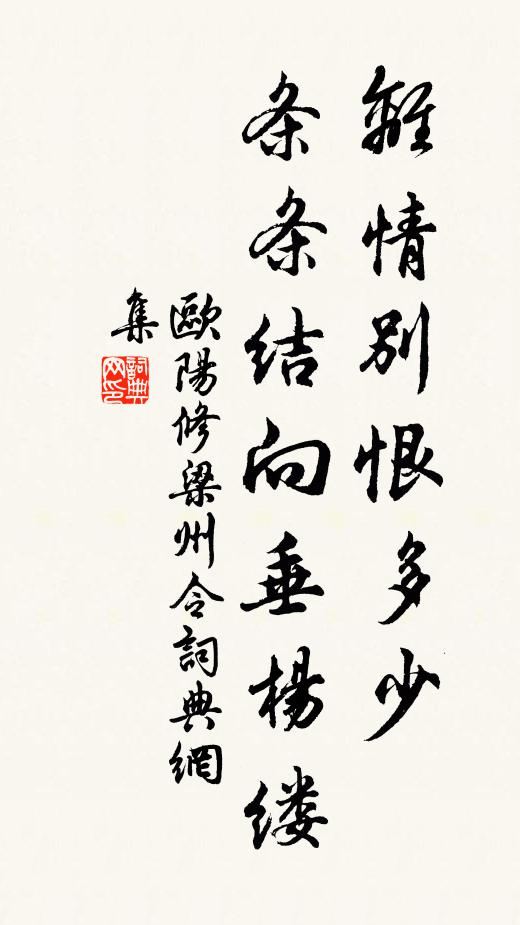 離情别恨多少
条条结向垂楊缕
歐陽修梁州令詞典網
集
詞典
网印